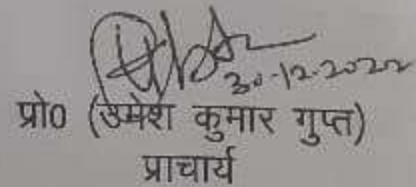 30-12-2022
प्रो0 (उमेश कुमार गुप्त)
प्राचार्य